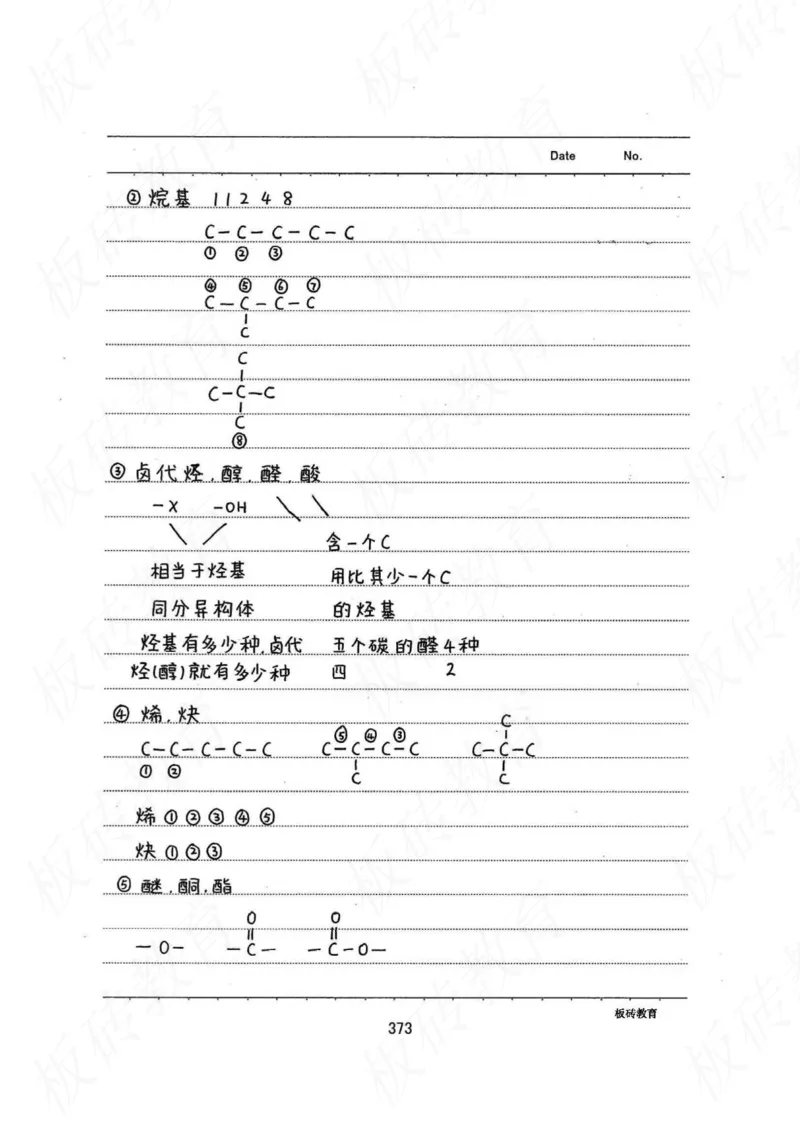 Date No.
② 烷基 1 1 2 4 8
C－C－C－C－C
① ② ③
④ ⑤ ⑥ ⑦
C－C－C－C
|
C
C
|
C－C－C
|
C
⑧
③ 卤代烃、醇、醛、酸
－X －OH
含一个C
相当于烃基 用比其少一个C
同分异构体 的烃基
烃基有多少种,卤代 五个碳的醛4种
烃(醇)就有多少种 四 2
④ 烯、炔
C
⑤ ④ ③ |
C－C－C－C－C C－C－C－C C－C－C
① ② | |
C C
烯 ① ② ③ ④ ⑤
炔 ① ② ③
⑤ 醚、酮、酯
O O
|| ||
－O－ －C－ －C－O－
板砖教育
373